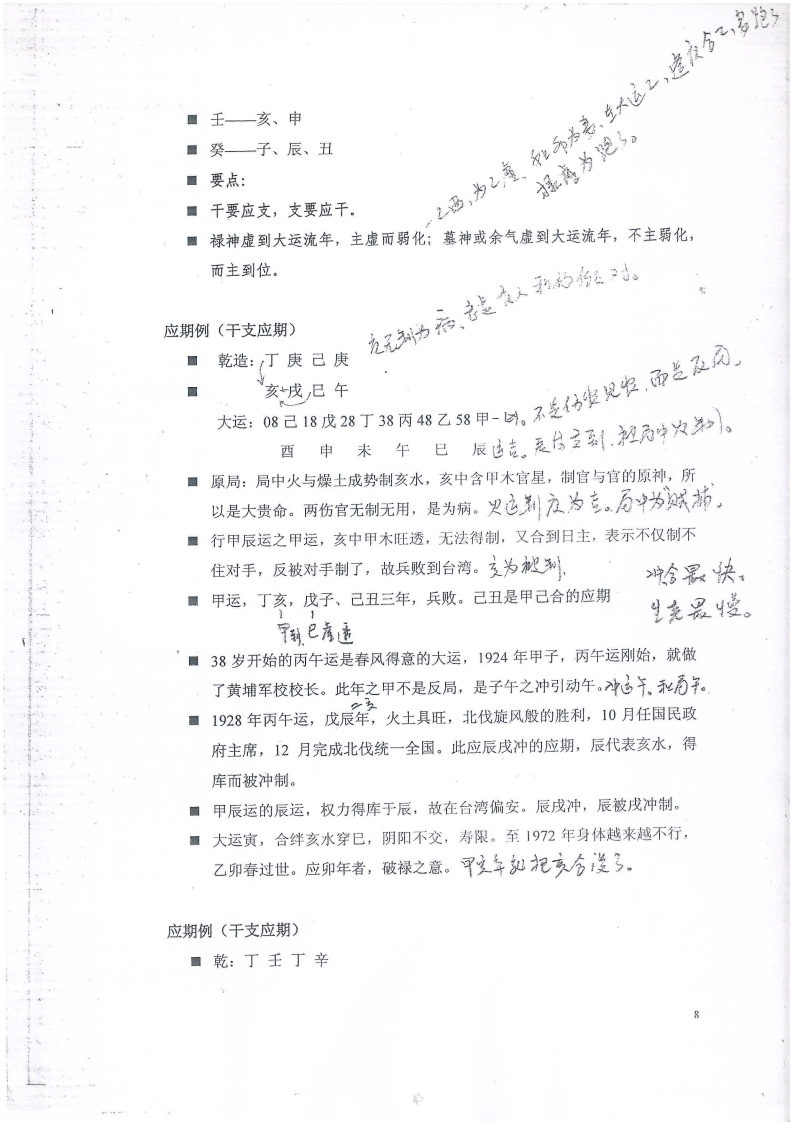 ■ 壬——亥、申
■ 癸——子、辰、丑
■ 要点:
■ 干要应支，支要应干。
■ 禄神虚到大运流年，主虚而弱化；墓神或余气虚到大运流年，不主弱化，
而主到位。
应期例（干支应期）
■ 乾造：丁 庚 己 庚
■ 亥 戌 巳 午
大运：08 己 18 戊 28 丁 38 丙 48 乙 58 甲
酉 申 未 午 巳 辰
■ 原局：局中火与燥土成势制亥水，亥中含甲木官星，制官与官的原神，所
以是大贵命。两伤官无制无用，是为病。
■ 行甲辰运之甲运，亥中甲木旺透，无法得制，又合到日主，表示不仅制不
住对手，反被对手制了，故兵败到台湾。亥为被制
冲合最快、
■ 甲运，丁亥，戊子、己丑三年，兵败。己丑是甲己合的应期
生克最慢。
■ 38 岁开始的丙午运是春风得意的大运，1924 年甲子，丙午运刚始，就做
了黄埔军校校长。此年之甲不是反局，是子午之冲引动午。
■ 1928 年丙午运，戊辰年，火土具旺，北伐旋风般的胜利，10 月任国民政
府主席，12 月完成北伐统一全国。此应辰戌冲的应期，辰代表亥水，得
库而被冲制。
■ 甲辰运的辰运，权力得库于辰，故在台湾偏安。辰戌冲，辰被戌冲制。
■ 大运寅，合绊亥水穿巳，阴阳不交，寿限。至 1972 年身体越来越不行，
乙卯春过世。应卯年者，破禄之意。
应期例（干支应期）
■ 乾：丁 壬 丁 辛
8